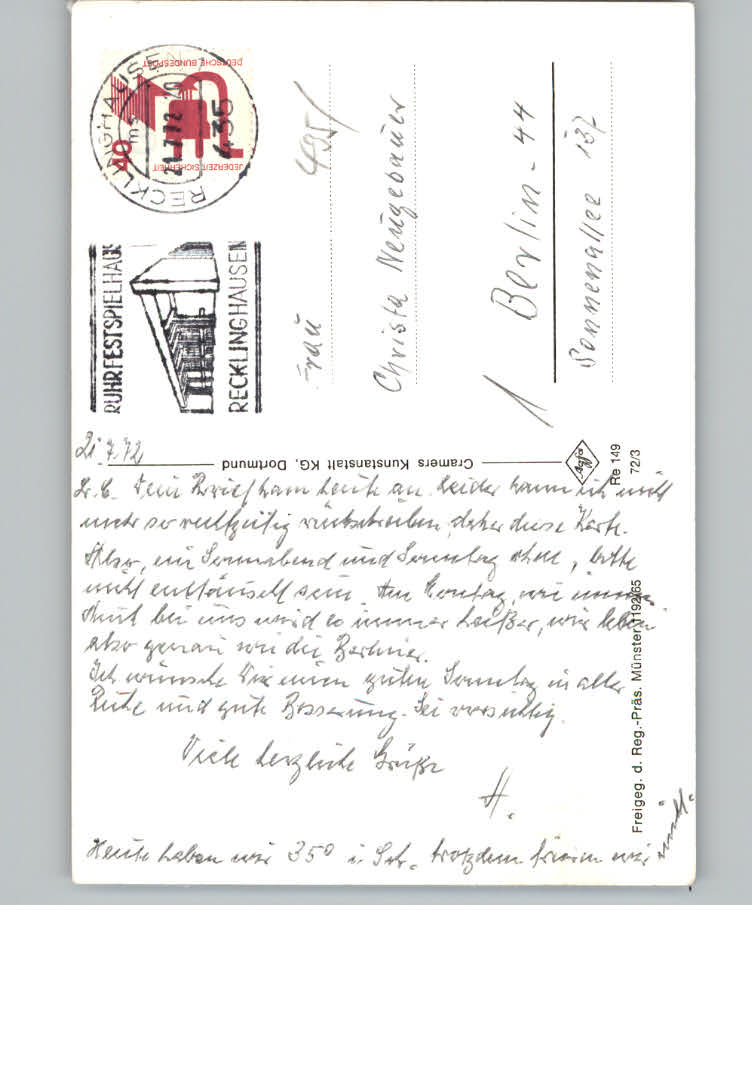 DEUTSCHE BUNDESPOST
40
JEDERZEIT SICHERHEIT
RECKLINGHAUSEN
21.7.72
435
RUHRFESTSPIELHAUS
RECKLINGHAUSEN
495/
Frau
Christa Neugebauer
1 Berlin - 44
Sonnenallee 137
Cramers Kunstanstalt KG, Dortmund
Agfa
Re 149
72/3
Freigeg. d. Reg.-Präs. Münster 1192/65
21.7.72
L. C. Dein Brief kam heute an. Leider kann ich nicht
mehr so rechtzeitig rückschreiben, daher diese Karte.
Also, ein Sonnabend und Sonntag ohne, bitte
nicht enttäuscht sein. Am Montag, wie immer
Auch bei uns wird es immer heißer, wir leben
also genau wie die Berliner.
Ich wünsche Dir einen guten Sonntag in aller
Ruhe und gute Besserung. Sei vorsichtig.
Viele herzliche Grüße
H.
Heute haben wir 35° i. Sch. trotzdem frieren wir nicht.